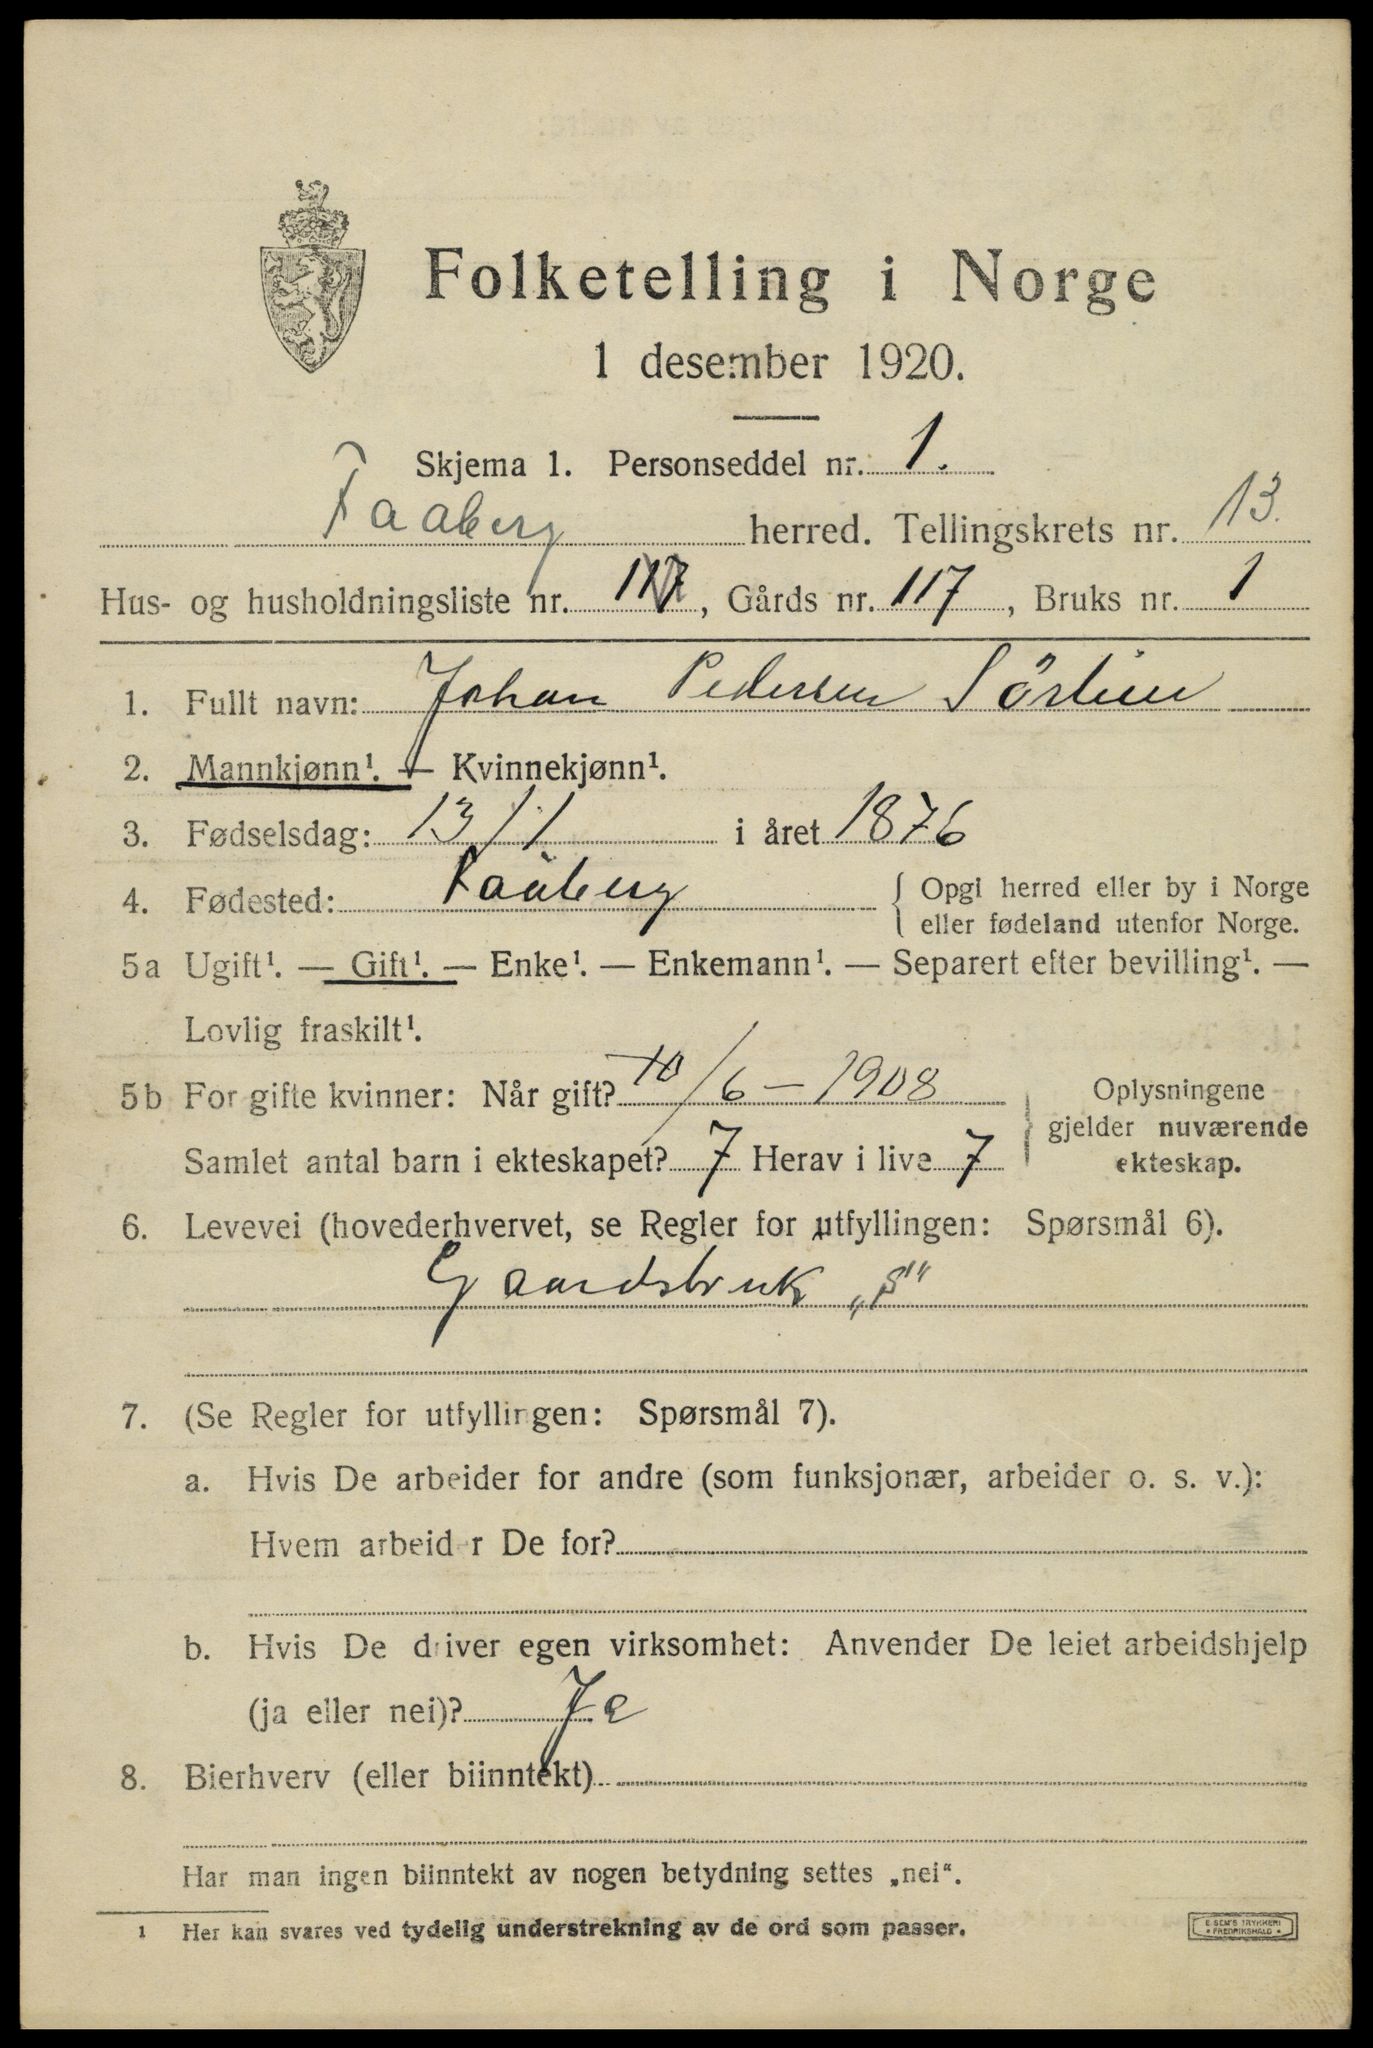 Folketelling i Norge
1 desember 1920.
Skjema 1. Personseddel nr. 1.
Faaberg herred. Tellingskrets nr. 13.
Hus- og husholdningsliste nr. , Gårds nr. 117, Bruks nr. 1
1. Fullt navn: Johan Pedersen Sörlien
2. Mannkjønn¹. — Kvinnekjønn¹.
3. Fødselsdag: 13/1 i året 1876
4. Fødested: Faaberg { Opgi herred eller by i Norge
eller fødeland utenfor Norge.
5a Ugift¹. — Gift¹. — Enke¹. — Enkemann¹. — Separert efter bevilling¹. —
Lovlig fraskilt¹.
5b For gifte kvinner: Når gift? 10/6 — 1908
Samlet antal barn i ekteskapet? 7 Herav i live 7
} Oplysningene
gjelder nuværende
ekteskap.
6. Levevei (hovederhvervet, se Regler for utfyllingen: Spørsmål 6).
Gaardsbruk „S"
7. (Se Regler for utfyllingen: Spørsmål 7).
a. Hvis De arbeider for andre (som funksjonær, arbeider o. s. v.):
Hvem arbeider De for?
b. Hvis De driver egen virksomhet: Anvender De leiet arbeidshjelp
(ja eller nei)? Ja
8. Bierhverv (eller biinntekt)
Har man ingen biinntekt av nogen betydning settes „nei“.
¹ Her kan svares ved tydelig understrekning av de ord som passer.
E. SEM'S TRYKKERI
• FREDRIKSHALD •